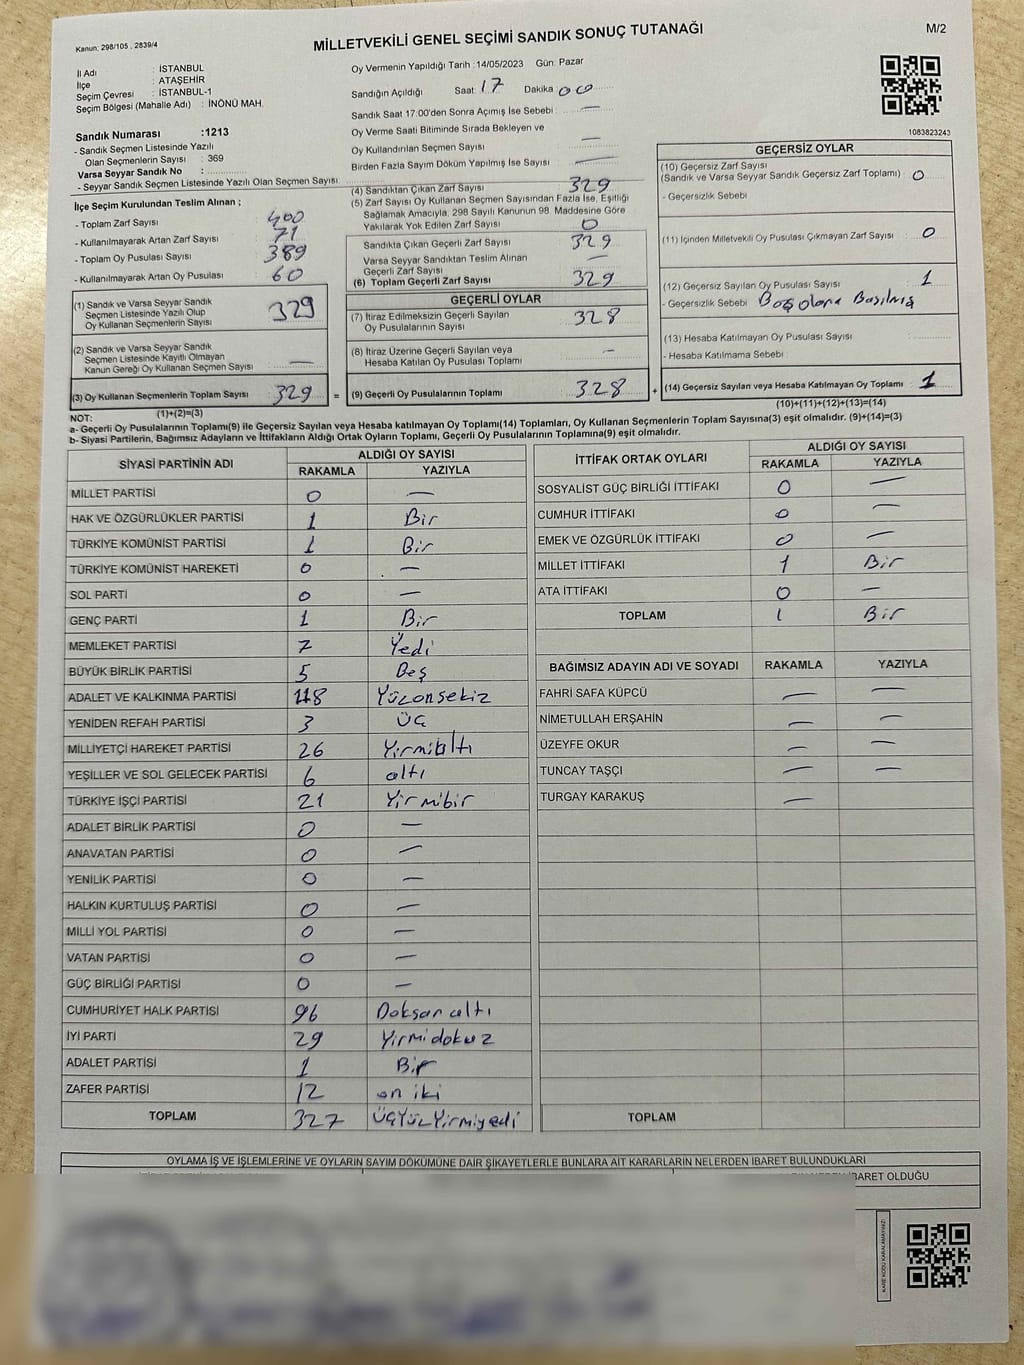 Kanun; 298/105 , 2839/4
MİLLETVEKİLİ GENEL SEÇİMİ SANDIK SONUÇ TUTANAĞI
M/2
İl Adı : İSTANBUL
İlçe : ATAŞEHİR
Seçim Çevresi : İSTANBUL-1
Seçim Bölgesi (Mahalle Adı) : İNÖNÜ MAH.
Sandık Numarası :1213
- Sandık Seçmen Listesinde Yazılı
Olan Seçmenlerin Sayısı : 369
Varsa Seyyar Sandık No :
- Seyyar Sandık Seçmen Listesinde Yazılı Olan Seçmen Sayısı
Oy Vermenin Yapıldığı Tarih :14/05/2023 Gün: Pazar
Sandığın Açıldığı Saat: 17 Dakika 00
Sandık Saat 17:00'den Sonra Açımış İse Sebebi : —
Oy Verme Saati Bitiminde Sırada Bekleyen ve
Oy Kullandırılan Seçmen Sayısı : —
Birden Fazla Sayım Döküm Yapılmış İse Sayısı —
1083823243
İlçe Seçim Kurulundan Teslim Alınan ;
- Toplam Zarf Sayısı : 400
- Kullanılmayarak Artan Zarf Sayısı : 71
- Toplam Oy Pusulası Sayısı : 389
- Kullanılmayarak Artan Oy Pusulası : 60
(1) Sandık ve Varsa Seyyar Sandık
Seçmen Listesinde Yazılı Olup
Oy Kullanan Seçmenlerin Sayısı : 329
(2) Sandık ve Varsa Seyyar Sandık
Seçmen Listesinde Kayıtlı Olmayan
Kanun Gereği Oy Kullanan Seçmen Sayısı : —
(3) Oy Kullanan Seçmenlerin Toplam Sayısı 329 =
(1)+(2)=(3)
(4) Sandıktan Çıkan Zarf Sayısı 329
(5) Zarf Sayısı Oy Kullanan Seçmen Sayısından Fazla İse, Eşitliği
Sağlamak Amacıyla, 298 Sayılı Kanunun 98. Maddesine Göre
Yakılarak Yok Edilen Zarf Sayısı : 0
Sandıkta Çıkan Geçerli Zarf Sayısı : 329
Varsa Seyyar Sandıktan Teslim Alınan
Geçerli Zarf Sayısı : —
(6) Toplam Geçerli Zarf Sayısı : 329
GEÇERLİ OYLAR
(7) İtiraz Edilmeksizin Geçerli Sayılan
Oy Pusulalarının Sayısı : 328
(8) İtiraz Üzerine Geçerli Sayılan veya
Hesaba Katılan Oy Pusulası Toplamı : —
(9) Geçerli Oy Pusulalarının Toplamı : 328 +
GEÇERSİZ OYLAR
(10) Geçersiz Zarf Sayısı
(Sandık ve Varsa Seyyar Sandık Geçersiz Zarf Toplamı) : 0
- Geçersizlik Sebebi
(11) İçinden Milletvekili Oy Pusulası Çıkmayan Zarf Sayısı : 0
(12) Geçersiz Sayılan Oy Pusulası Sayısı : 1
- Geçersizlik Sebebi Boş alana Basılmış
(13) Hesaba Katılmayan Oy Pusulası Sayısı :
- Hesaba Katılmama Sebebi
(14) Geçersiz Sayılan veya Hesaba Katılmayan Oy Toplamı : 1
(10)+(11)+(12)+(13)=(14)
NOT:
a- Geçerli Oy Pusulalarının Toplamı(9) ile Geçersiz Sayılan veya Hesaba katılmayan Oy Toplamı(14) Toplamları, Oy Kullanan Seçmenlerin Toplam Sayısına(3) eşit olmalıdır. (9)+(14)=(3)
b- Siyasi Partilerin, Bağımsız Adayların ve İttifakların Aldığı Ortak Oyların Toplamı, Geçerli Oy Pusulalarının Toplamına(9) eşit olmalıdır.
SİYASİ PARTİNİN ADI ALDIĞI OY SAYISI
RAKAMLA YAZIYLA
MİLLET PARTİSİ 0 —
HAK VE ÖZGÜRLÜKLER PARTİSİ 1 Bir
TÜRKİYE KOMÜNİST PARTİSİ 1 Bir
TÜRKİYE KOMÜNİST HAREKETİ 0 —
SOL PARTİ 0 —
GENÇ PARTİ 1 Bir
MEMLEKET PARTİSİ 7 Yedi
BÜYÜK BİRLİK PARTİSİ 5 Beş
ADALET VE KALKINMA PARTİSİ 118 Yüzonsekiz
YENİDEN REFAH PARTİSİ 3 Üç
MİLLİYETÇİ HAREKET PARTİSİ 26 Yirmialtı
YEŞİLLER VE SOL GELECEK PARTİSİ 6 altı
TÜRKİYE İŞÇİ PARTİSİ 21 Yirmibir
ADALET BİRLİK PARTİSİ 0 —
ANAVATAN PARTİSİ 0 —
YENİLİK PARTİSİ 0 —
HALKIN KURTULUŞ PARTİSİ 0 —
MİLLİ YOL PARTİSİ 0 —
VATAN PARTİSİ 0 —
GÜÇ BİRLİĞİ PARTİSİ 0 —
CUMHURİYET HALK PARTİSİ 96 Doksan altı
İYİ PARTİ 29 Yirmidokuz
ADALET PARTİSİ 1 Bir
ZAFER PARTİSİ 12 on iki
TOPLAM 327 ÜçYüzYirmiyedi
İTTİFAK ORTAK OYLARI ALDIĞI OY SAYISI
RAKAMLA YAZIYLA
SOSYALİST GÜÇ BİRLİĞİ İTTİFAKI 0 —
CUMHUR İTTİFAKI 0 —
EMEK VE ÖZGÜRLÜK İTTİFAKI 0 —
MİLLET İTTİFAKI 1 Bir
ATA İTTİFAKI 0 —
TOPLAM 1 Bir
BAĞIMSIZ ADAYIN ADI VE SOYADI RAKAMLA YAZIYLA
FAHRİ SAFA KÜPCÜ — —
NİMETULLAH ERŞAHİN — —
ÜZEYFE OKUR — —
TUNCAY TAŞÇI — —
TURGAY KARAKUŞ —
TOPLAM
OYLAMA İŞ VE İŞLEMLERİNE VE OYLARIN SAYIM DÖKÜMÜNE DAİR ŞİKAYETLERLE BUNLARA AİT KARARLARIN NELERDEN İBARET BULUNDUKLARI
İBARET OLDUĞU
KARE KODU KARALAMAYINIZ!